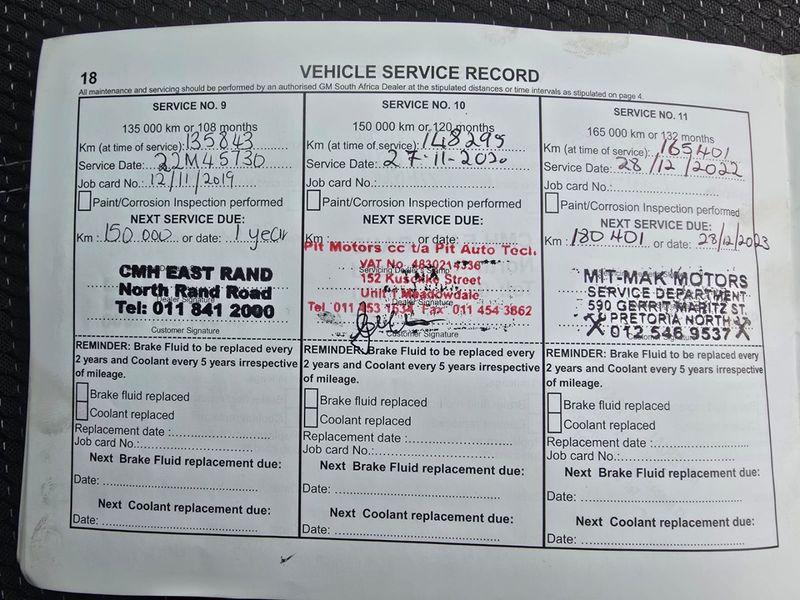 18
VEHICLE SERVICE RECORD
All maintenance and servicing should be performed by an authorised GM South Africa Dealer at the stipulated distances or time intervals as stipulated on page 4.
SERVICE NO. 9
135 000 km or 108 months
Km (at time of service): 135843
Service Date: 22M45730
Job card No. 12/11/2019
Paint/Corrosion Inspection performed
NEXT SERVICE DUE:
Km : 150 000 or date: 1 year
CMH EAST RAND
North Rand Road
Dealer Signature
Tel: 011 841 2000
Customer Signature
REMINDER: Brake Fluid to be replaced every
2 years and Coolant every 5 years irrespective
of mileage.
Brake fluid replaced
Coolant replaced
Replacement date :
Job card No.:
Next Brake Fluid replacement due:
Date:
Next Coolant replacement due:
Date:
SERVICE NO. 10
150 000 km or 120 months
Km (at time of service): 148295
Service Date: 27-11-2020
Job card No.:
Paint/Corrosion Inspection performed
NEXT SERVICE DUE:
Km : or date:
Pit Motors cc t/a Pit Auto Tech.
VAT No. 4830214336
Servicing Dealer's Stamp
152 Street
Unit 1 Meadowdale
Dealer Signature
Tel 011 453 1634 Fax 011 454 3862
Customer Signature
REMINDER: Brake Fluid to be replaced every
2 years and Coolant every 5 years irrespective
of mileage.
Brake fluid replaced
Coolant replaced
Replacement date :
Job card No.:
Next Brake Fluid replacement due:
Date:
Next Coolant replacement due:
Date:
SERVICE NO. 11
165 000 km or 132 months
Km (at time of service): 165401
Service Date: 28/12/2022
Job card No.:
Paint/Corrosion Inspection performed
NEXT SERVICE DUE:
Km : 180 401 or date: 28/12/2023
MIT-MAK MOTORS
SERVICE DEPARTMENT
590 GERRIT MARITZ ST.
PRETORIA NORTH
012 546 9537
REMINDER: Brake Fluid to be replaced every
2 years and Coolant every 5 years irrespective
of mileage.
Brake fluid replaced
Coolant replaced
Replacement date :
Job card No.:
Next Brake Fluid replacement due:
Date:
Next Coolant replacement due:
Date: